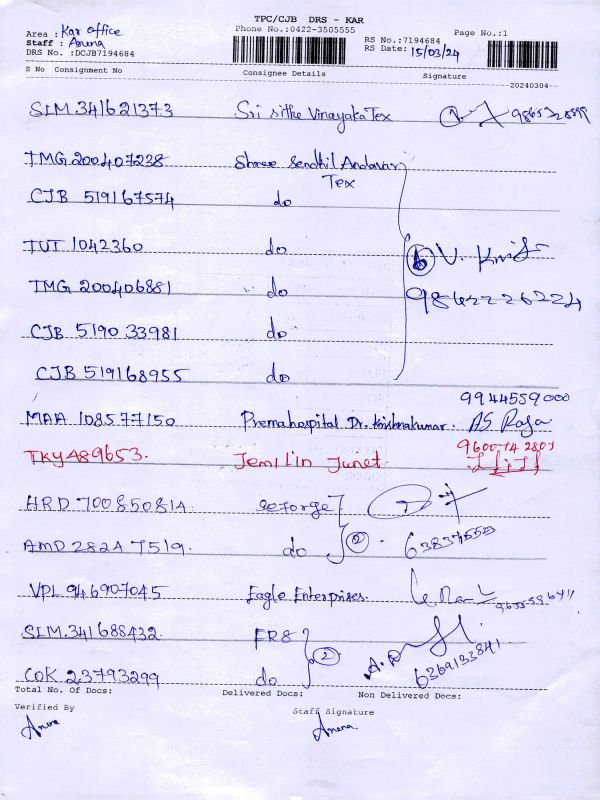 TPC/CJB DRS - KAR
Phone No.:0422-3505555
Page No.:1
Area : Kar office
RS No.:7194684
Staff : Amena
RS Date: 15/03/24
DRS No. :DCJB7194684
S No Consignment No Consignee Details Signature
20240304
SLM 341621373 Sri sithe Vinayaka Tex
TMG 200407238 Shree Sendhil Andavar
Tex
CJB 519167574 do
TUT 1042360 do
6 V.
TMG 200406881 do
9862226224
CJB 519033981 do
CJB 519168955 do
9944559000
MAA 108577150 Premahospital Dr. Krishnakumar. AS Raja
TKY489653. Jemilin Junet
HRD 700850814
AMD 28247519. do 2
VPL 946907045 Eagle Enterprises.
SLM.341688432 FR8
2 6369133841
COK 23793299 do
Total No. Of Docs: Delivered Docs: Non Delivered Docs:
Verified By Staff Signature
Amena Amena